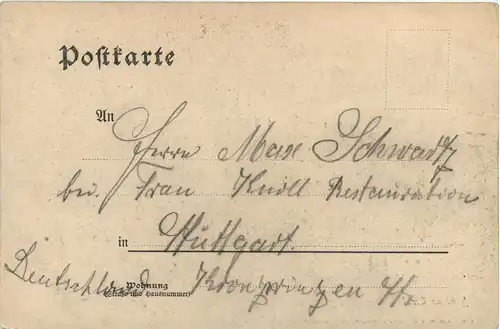 Postkarte
An Herrn Max Schwartz
bei. Frau Knoll Restauration
in Stuttgart.
Deutschland Kronprinzen St.
Wohnung
(Straße und Hausnummer)